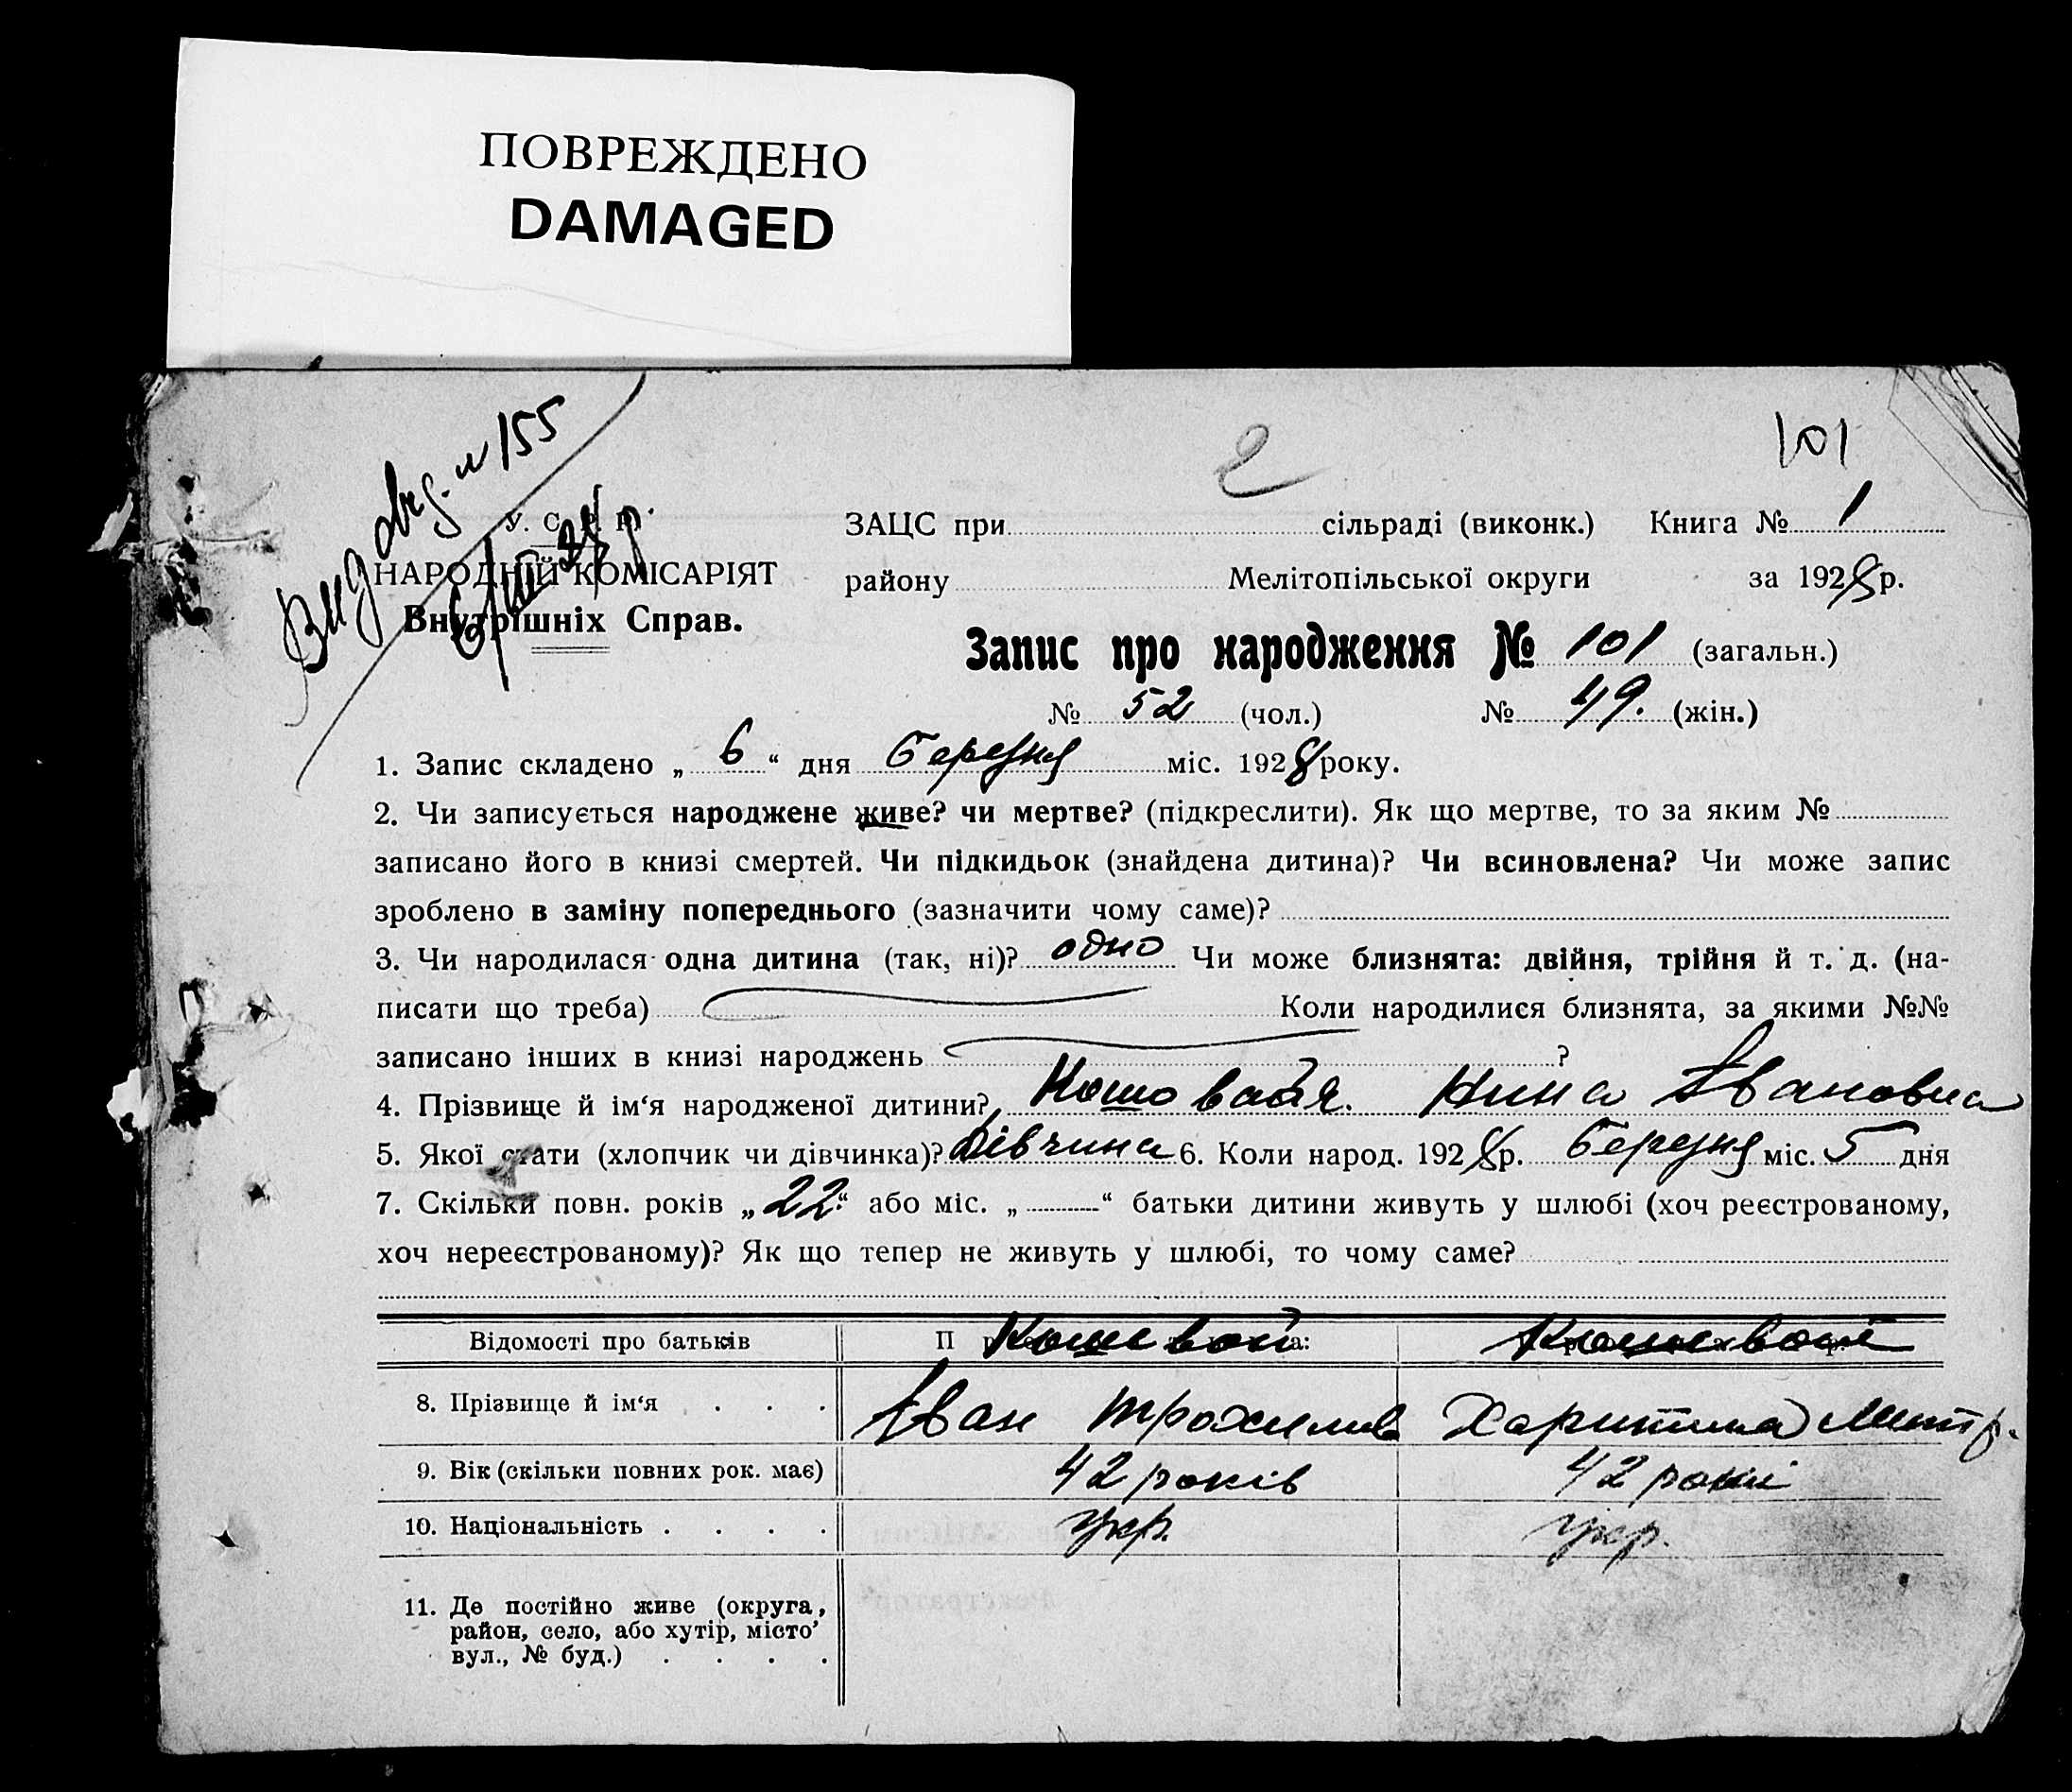 ПОВРЕЖДЕНО
DAMAGED
101
2
Вид довд. № 155
У. С. Р. Р.
НАРОДНІЙ КОМІСАРІЯТ
Внутрішніх Справ.
ЗАЦС при сільраді (виконк.) Книга № 1
району Мелітопільської округи за 1928 р.
Запис про народження № 101 (загальн.)
№ 52 (чол.) № 49. (жін.)
1. Запис складено „ 6 “ дня березня міс. 1928 року.
2. Чи записується народжене живе? чи мертве? (підкреслити). Як що мертве, то за яким №
записано його в книзі смертей. Чи підкидьок (знайдена дитина)? Чи всиновлена? Чи може запис
зроблено в заміну попереднього (зазначити чому саме)?
3. Чи народилася одна дитина (так, ні)? одно Чи може близнята: двійня, трійня й т. д. (на-
писати що треба) Коли народилися близнята, за якими №№
записано інших в книзі народжень ?
4. Прізвище й ім‘я народженої дитини? Кошовая. Нина Івановна
5. Якої стати (хлопчик чи дівчинка)? дівчина 6. Коли народ. 1928 р. березня міс. 5 дня
7. Скільки повн. років „ 22 “ або міс. „ “ батьки дитини живуть у шлюбі (хоч реєстрованому,
хоч нереєстрованому)? Як що тепер не живуть у шлюбі, то чому саме?
Відомості про батьків Кошевой
8. Прізвище й ім‘я . . . Іван Трохимов Харитина Митр.
9. Вік (скільки повних рок. має) 42 років 42 роки
10. Національність . . . . укр. укр.
11. Де постійно живе (округа,
район, село, або хутір, місто’
вул., № буд.) . . . .